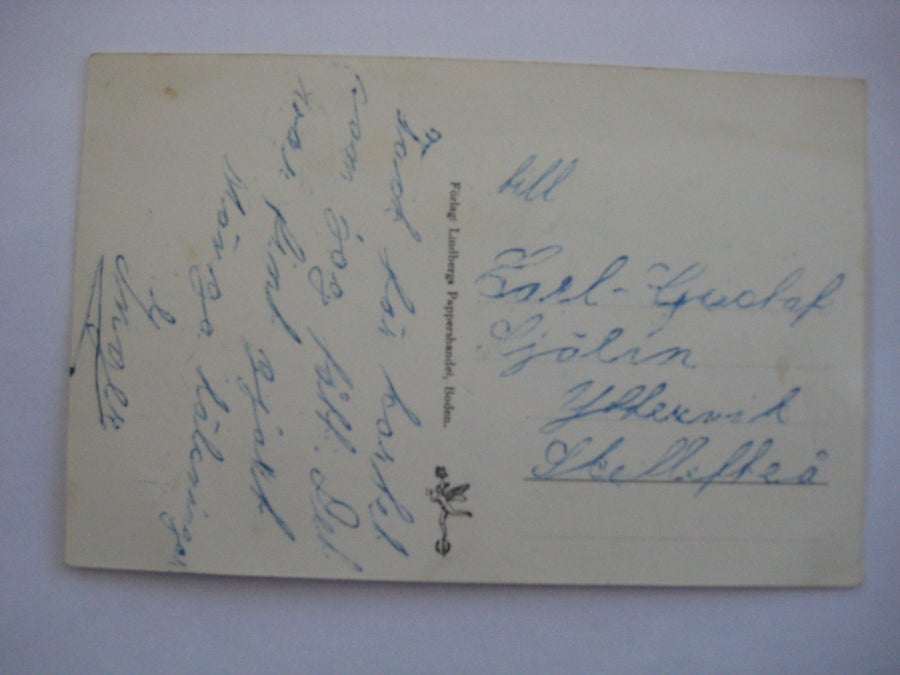 Tack för kortet
som jag fått. Det
var fint gjort
Många hälsningar
Förlag: Lindbergs Pappershandel, Boden.
till
Karl-Gustaf
Sjölin
Yttervik
Skellefteå